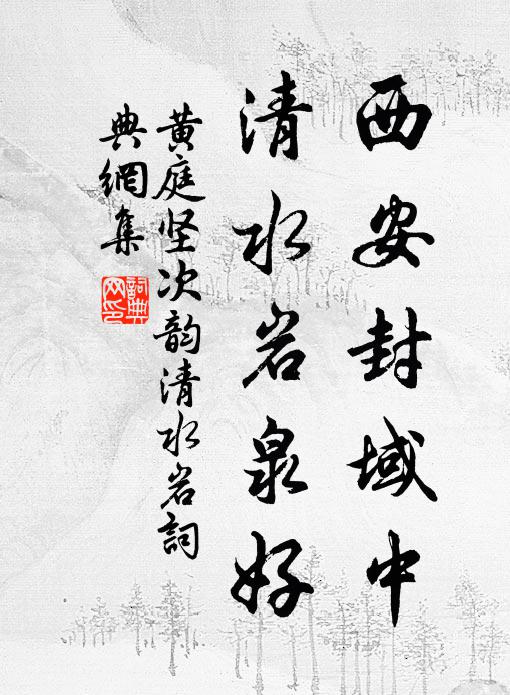 西安封域中
清水岩泉好
黄庭坚次韵清水岩詞
典網集
詞典网印